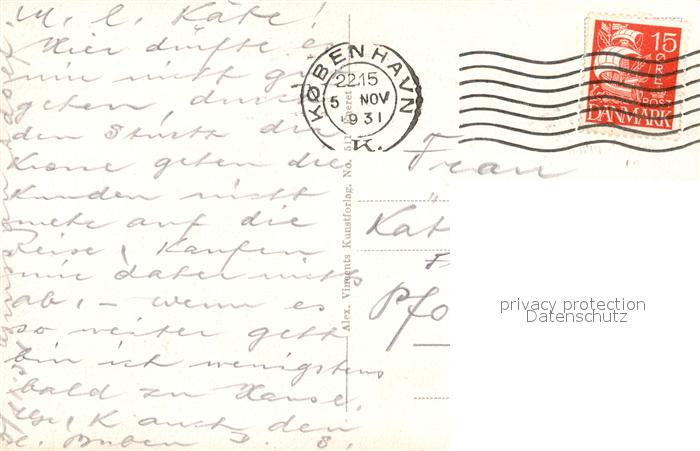 M. l. Käte!
Hier dürfte es
mir nicht gut
gehen, durch
den Sturtz der
Krone gehen die
Kunden nicht
mehr auf die
Reise, Kaufen
mir daher nichts
ab, – wenn es
so weiter geht
bin ich wenigstens
bald zu Hause.
K auch den
Buben
KØBENHAVN
22.15
5 NOV
1931
K.
15
ØRE
POST
DANMARK
Alex. Vincents Kunstforlag. No. 511 Eneret
Frau
Kät
F
Pfo
privacy protection
Datenschutz